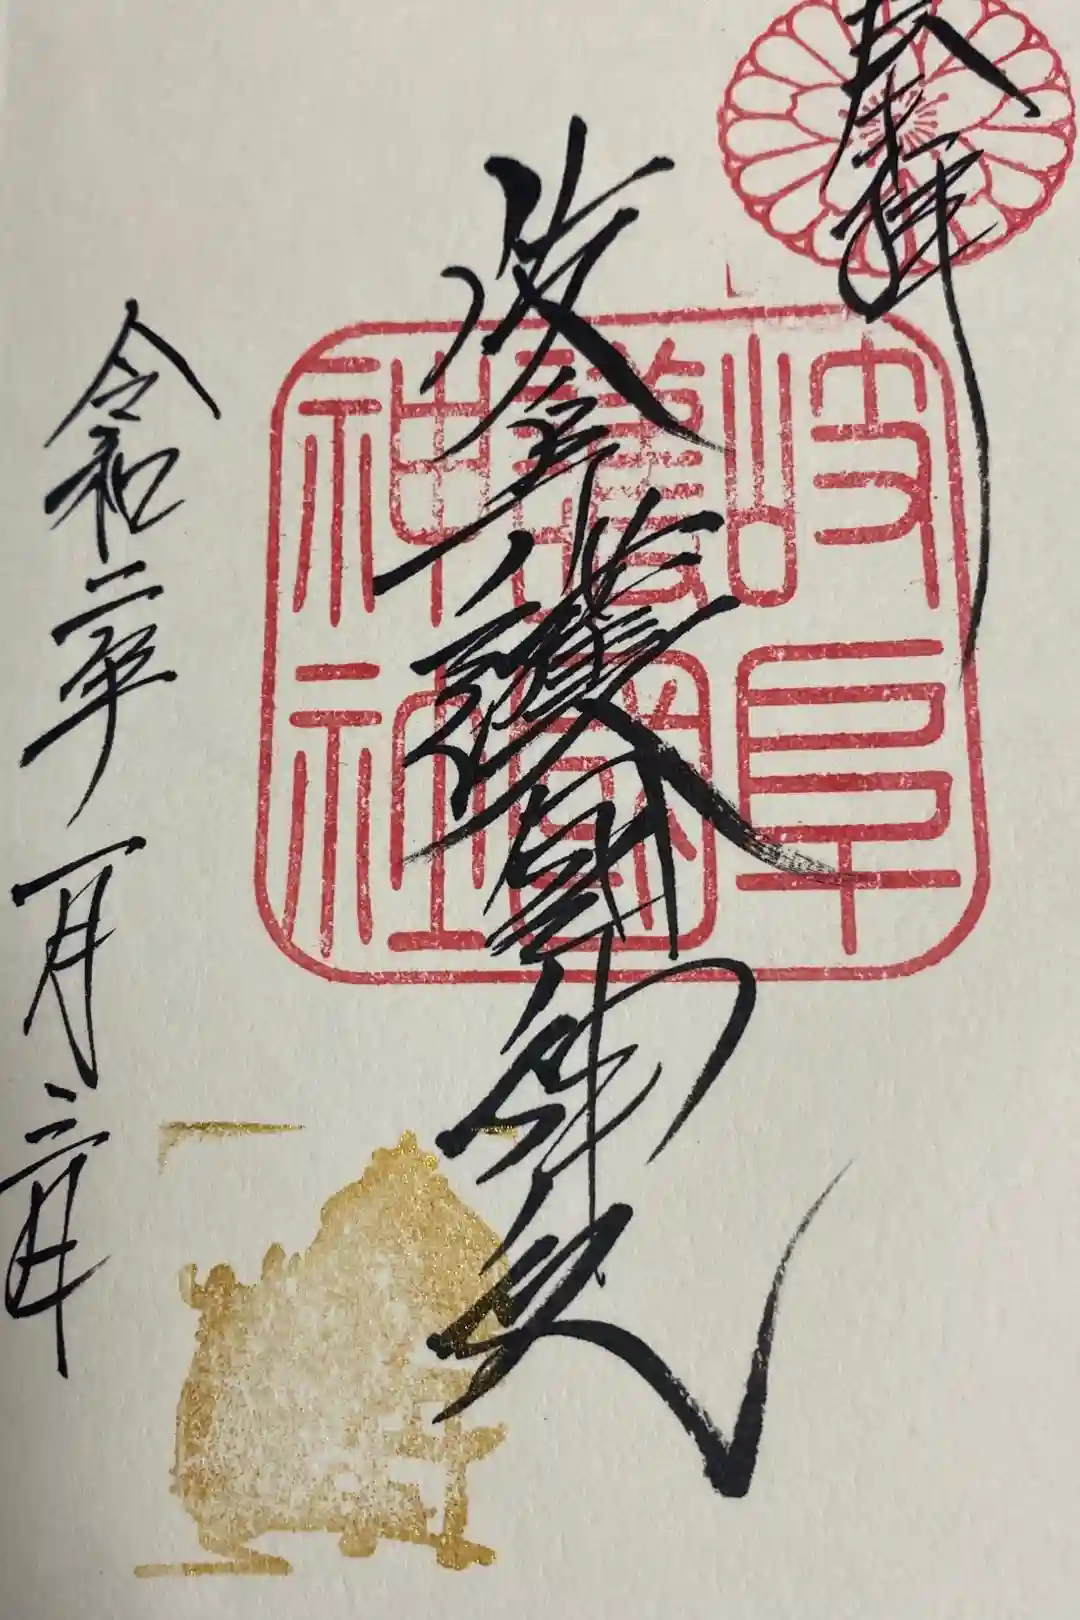 奉拝
岐阜
護國
神社
岐阜護國神社
令和二年一月